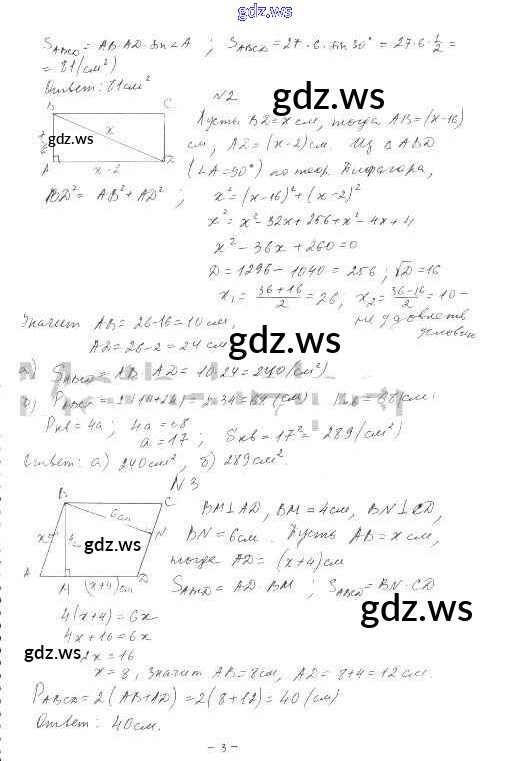 gdz.ws
S_ABCD = AB·AD·sin∠A ; S_ABCD = 27·6·sin30° = 27·6·1/2 =
= 81(см²)
Ответ: 81см²
N2
gdz.ws
B C
Пусть BD = x см, тогда AB = (x-16)
gdz.ws
x
см, AD = (x-2)см. Из △ABD
A x-2 D
(∠A=90°) по теор. Пифагора,
BD² = AB² + AD² ; x² = (x-16)² + (x-2)²
x² = x² - 32x + 256 + x² - 4x + 4
x² - 36x + 260 = 0
D = 1296 - 1040 = 256 ; √D = 16
x₁ = (36+16)/2 = 26; x₂ = (36-16)/2 = 10 -
Значит AB = 26-16 = 10 см,
не удовлеть
условию
AD = 26-2 = 24 см
gdz.ws
а) S_ABCD = AB·AD = 10·24 = 240(см²)
б) P_ABCD = 2(10+24) = 2·34 = 68(см) P_кв = 68 см.
P_кв = 4a ; 4a = 68
a = 17 ; S_кв = 17² = 289(см²)
Ответ: а) 240см², б) 289см².
N3
B C
6см
BM⊥AD, BM = 4см, BN⊥CD,
x N
BN = 6см. Пусть AB = x см,
gdz.ws
тогда AD = (x+4)см
A M (x+4)см D
S_ABCD = AD·BM ; S_ABCD = BN·CD
gdz.ws
4(x+4) = 6x
4x+16 = 6x
gdz.ws
2x = 16
x = 8, значит AB = 8см, AD = 8+4 = 12см.
P_ABCD = 2(AB+AD) = 2(8+12) = 40(см)
Ответ: 40см.
- 3 -